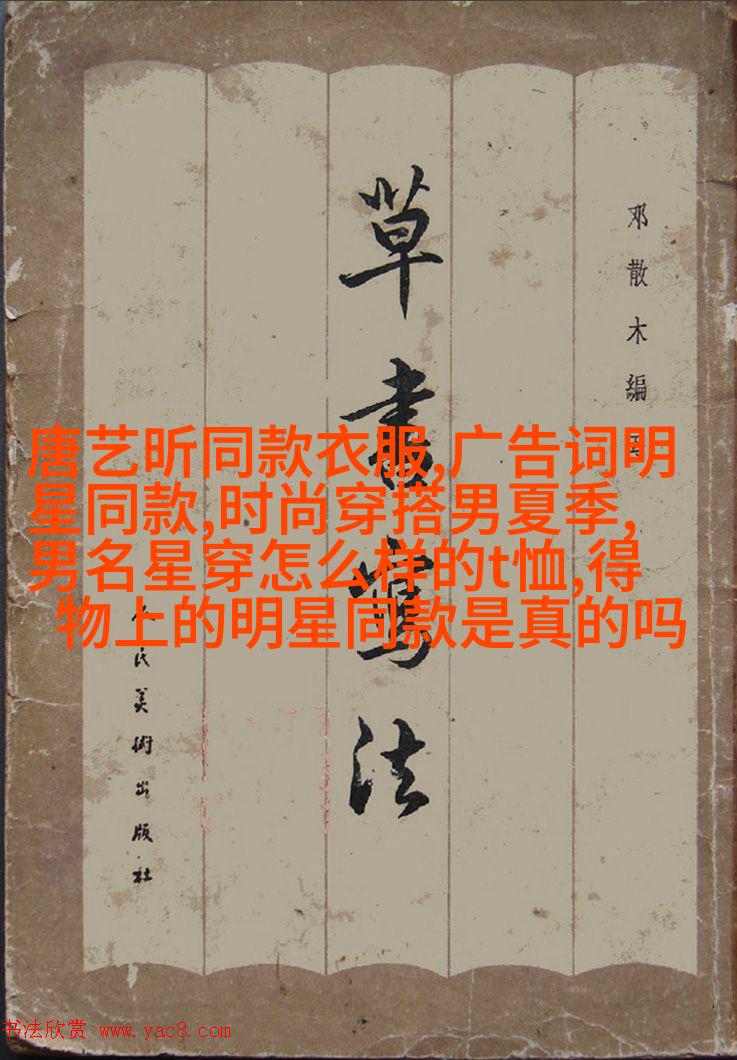 草書寫法
邓散木编
唐艺昕同款衣服,广告词明
星同款,时尚穿搭男夏季,
男名星穿怎么样的t恤,得
物上的明星同款是真的吗
人民美術出版社
书法欣赏 www.yac8.com